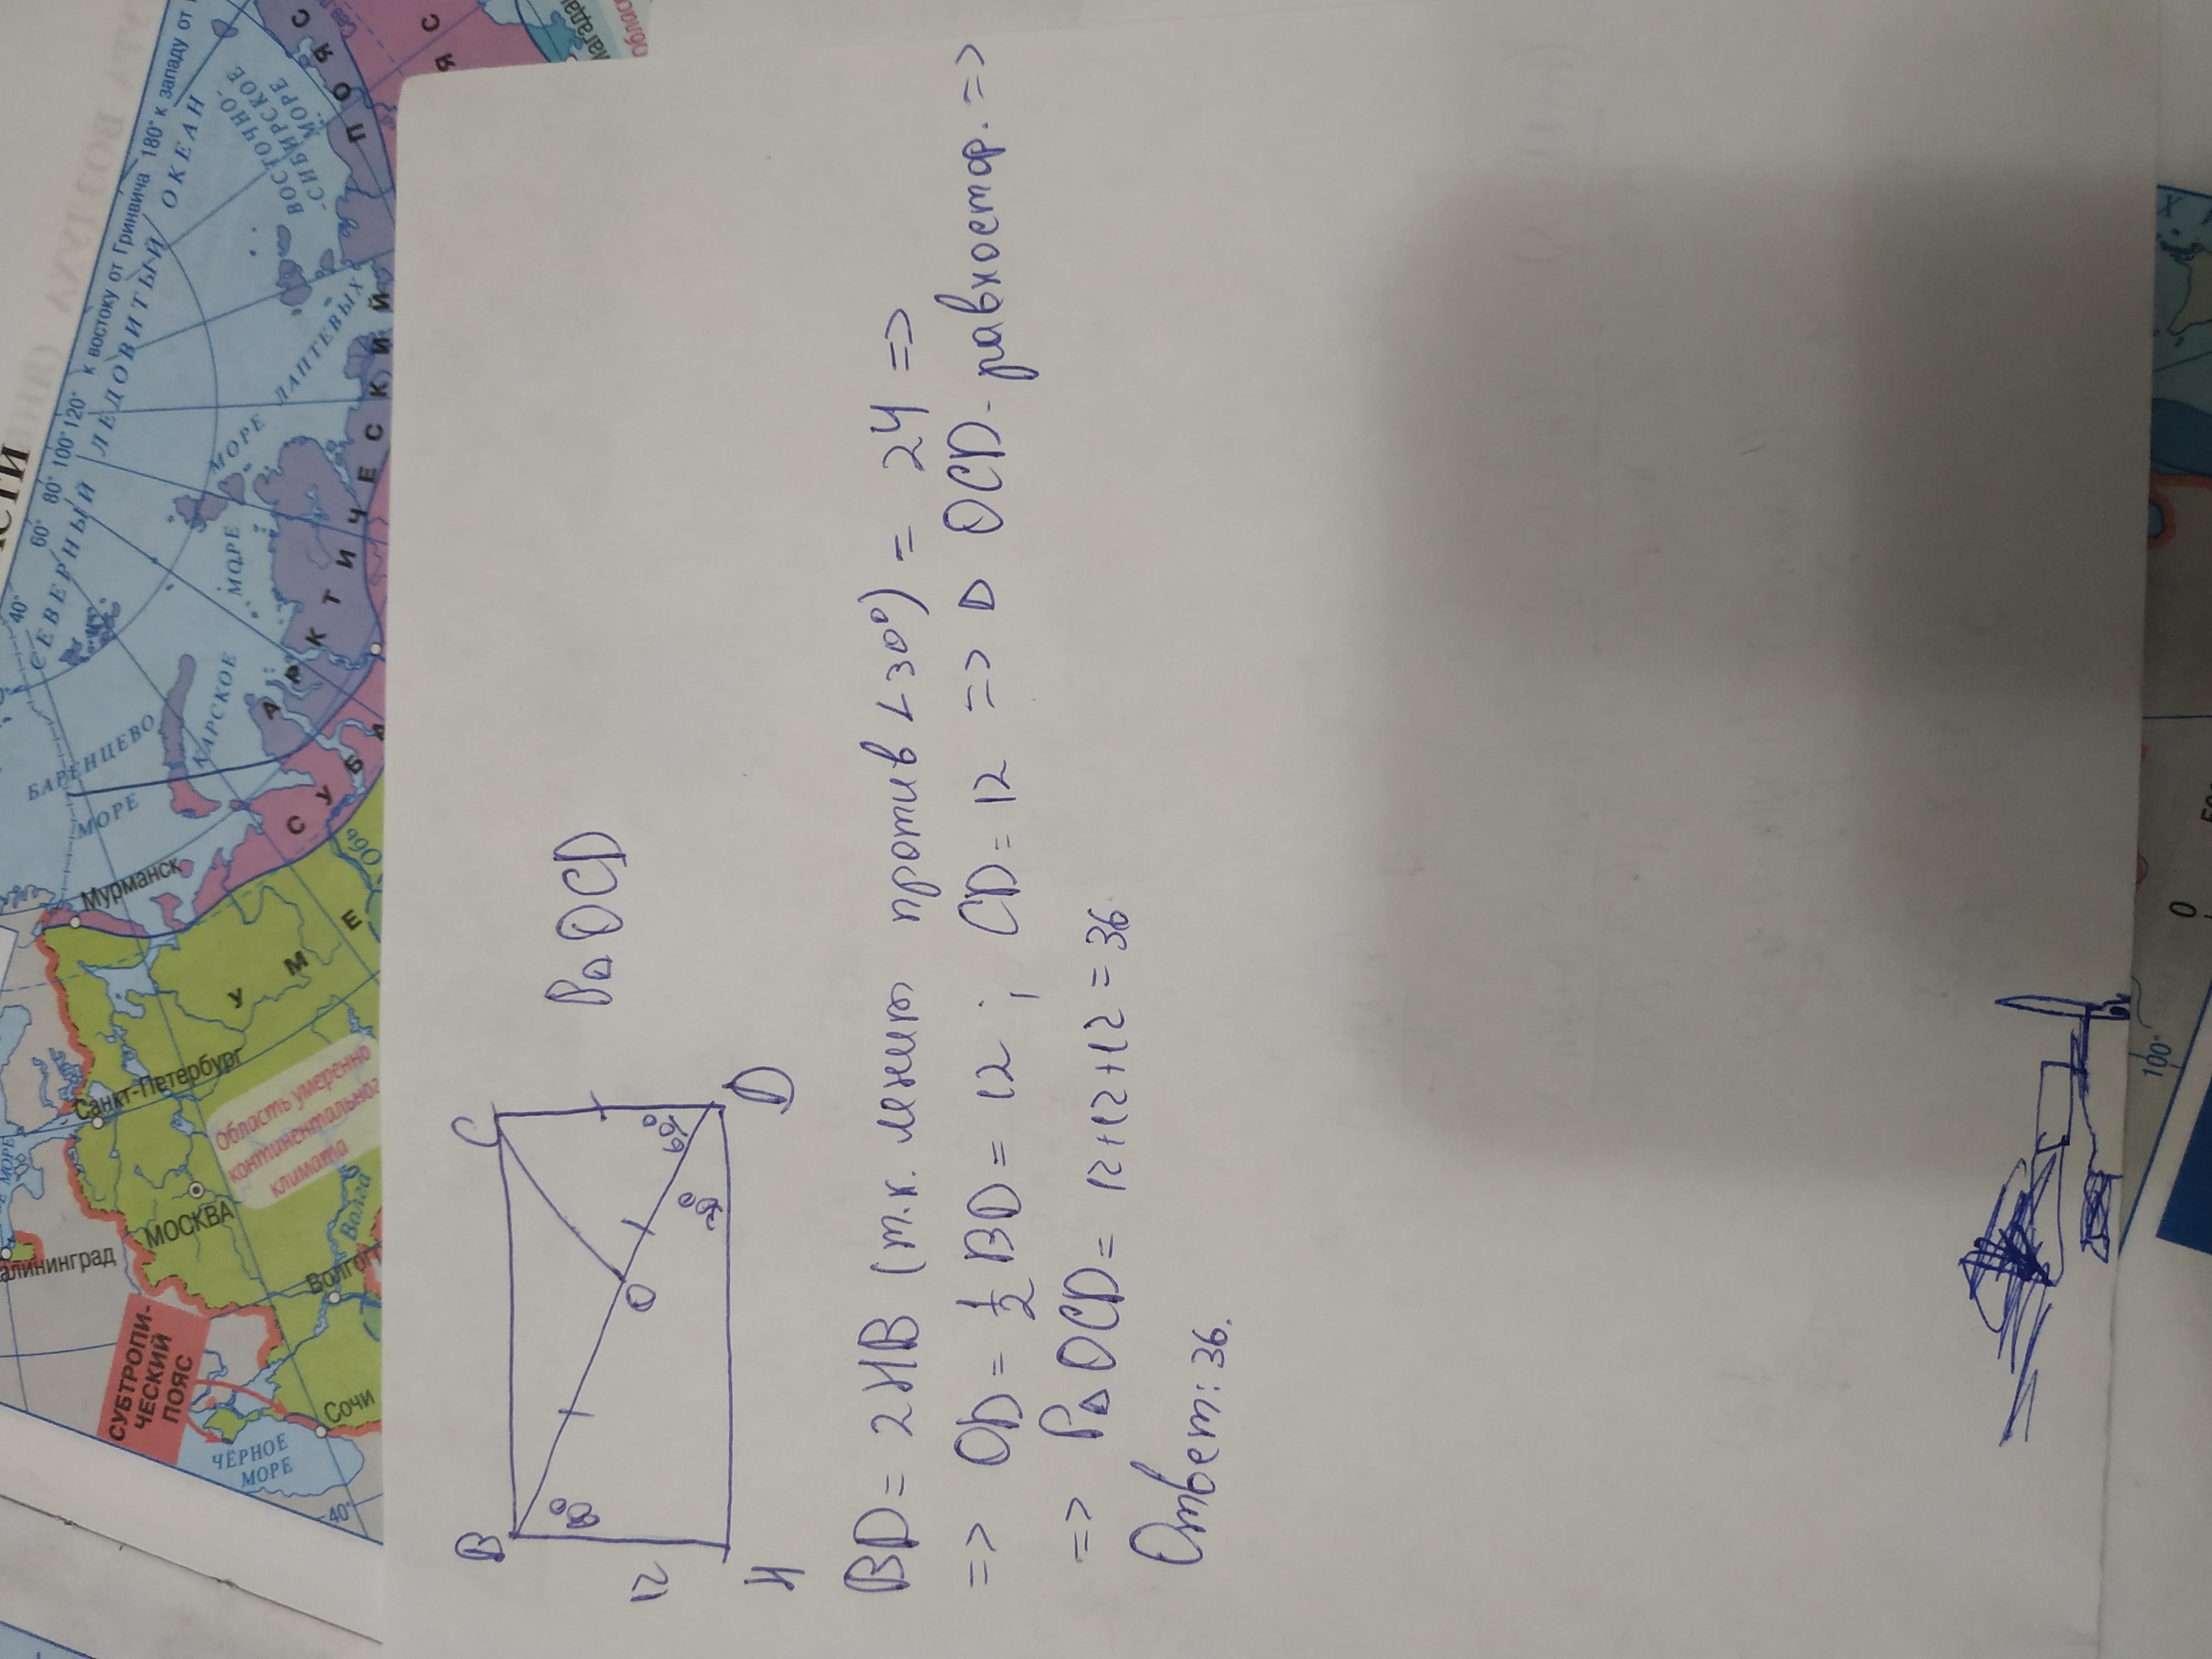 B
C
12
H
D
O
60°
30°
60°
P△ OCD
BD = 2HB (т.к. лежит против ∠30°) = 24 =>
=> OD = 1/2 BD = 12 ; CD = 12 => △ OCD - равностор. =>
=> P△ OCD = 12+12+12 = 36
Ответ: 36.
к востоку от Гринвича 180° к западу от
40°
60°
80°
100°
120°
СЕВЕРНЫЙ ЛЕДОВИТЫЙ ОКЕАН
ВОСТОЧНО-
-СИБИРСКОЕ
МОРЕ
МОРЕ ЛАПТЕВЫХ
БАРЕНЦЕВО
МОРЕ
КАРСКОЕ
МОРЕ
АРКТИЧЕСКИЙ ПОЯС
СУБА
УМЕ
Мурманск
Санкт-Петербург
МОСКВА
Волга
Обь
Сочи
ЧЁРНОЕ
МОРЕ
40°
СУБТРОПИ-
ЧЕСКИЙ
ПОЯС
Область умеренно
континентального
климата
100°
0